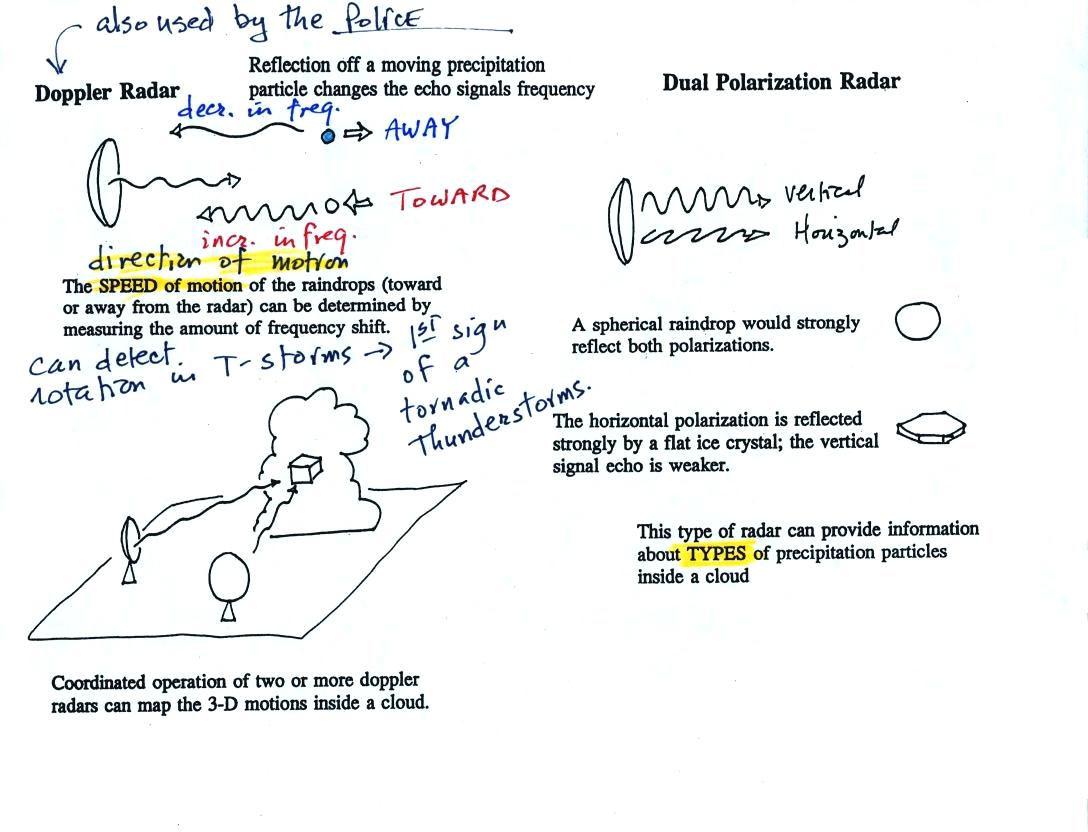 also used by the PolicE
Doppler Radar
Reflection off a moving precipitation
particle changes the echo signals frequency
decr. in freq.
AWAY
TOWARD
incr. in freq.
direction of motion
The SPEED of motion of the raindrops (toward
or away from the radar) can be determined by
measuring the amount of frequency shift.
can detect
rotation in T-storms → 1ST sign
of a
tornadic
thunderstorms.
Coordinated operation of two or more doppler
radars can map the 3-D motions inside a cloud.
Dual Polarization Radar
vertical
Horizontal
A spherical raindrop would strongly
reflect both polarizations.
The horizontal polarization is reflected
strongly by a flat ice crystal; the vertical
signal echo is weaker.
This type of radar can provide information
about TYPES of precipitation particles
inside a cloud